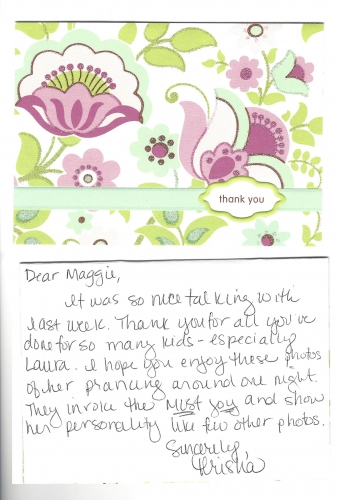 thank you
Dear Maggie,
It was so nice talking with
last week. Thank you for all you've
done for so many kids - especially
Laura. I hope you enjoy these photos
of her prancing around one night.
They invoke the Must Joy and show
her personality like few other photos.
Sincerely,
Krisha